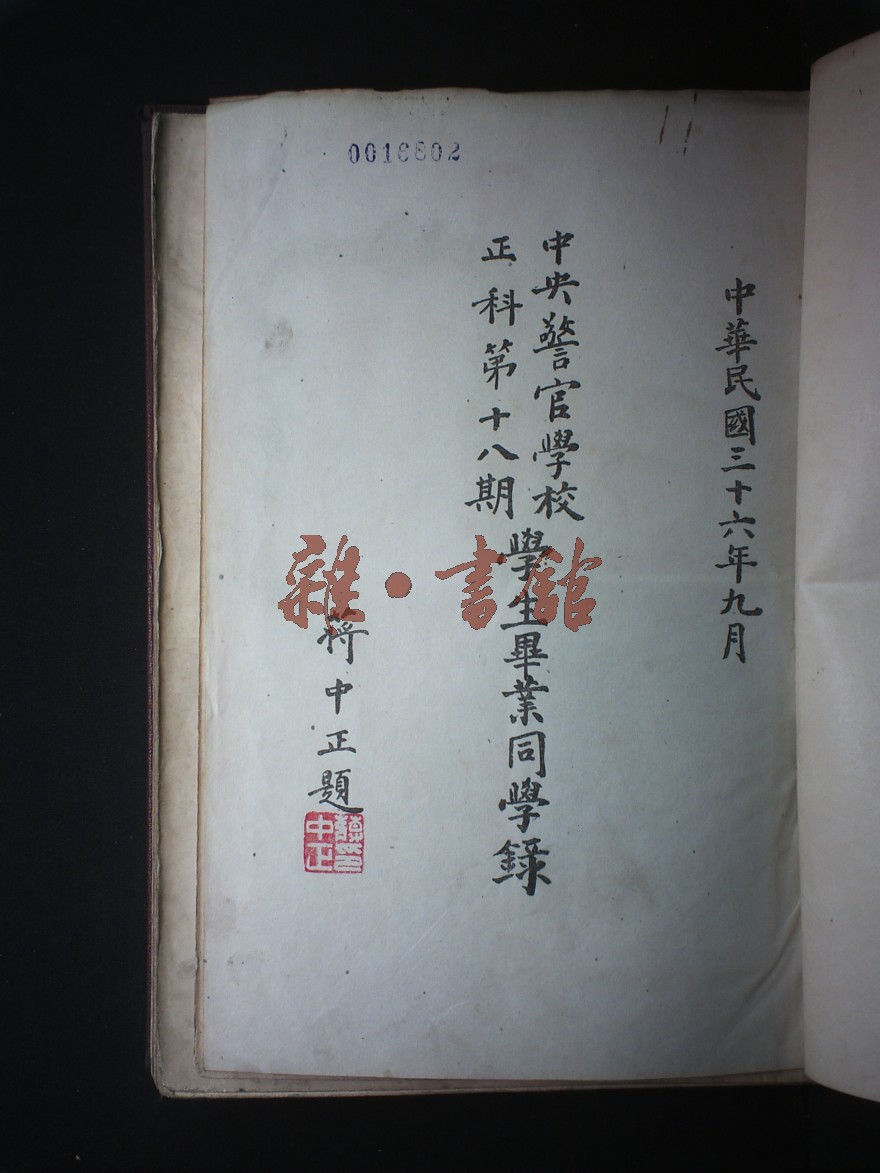 0016802
中華民國三十六年九月
中央警官學校
正科第十八期
學生畢業同學錄
蔣中正題
蔣中正印
雜·書館